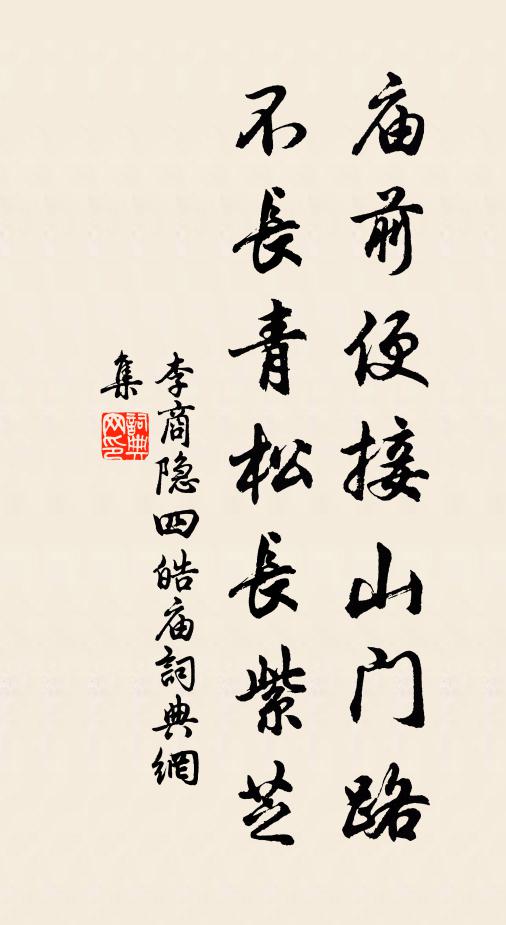 庙前便接山门路
不長青松長紫芝
李商隐四皓庙詞典網
集
詞典
网印